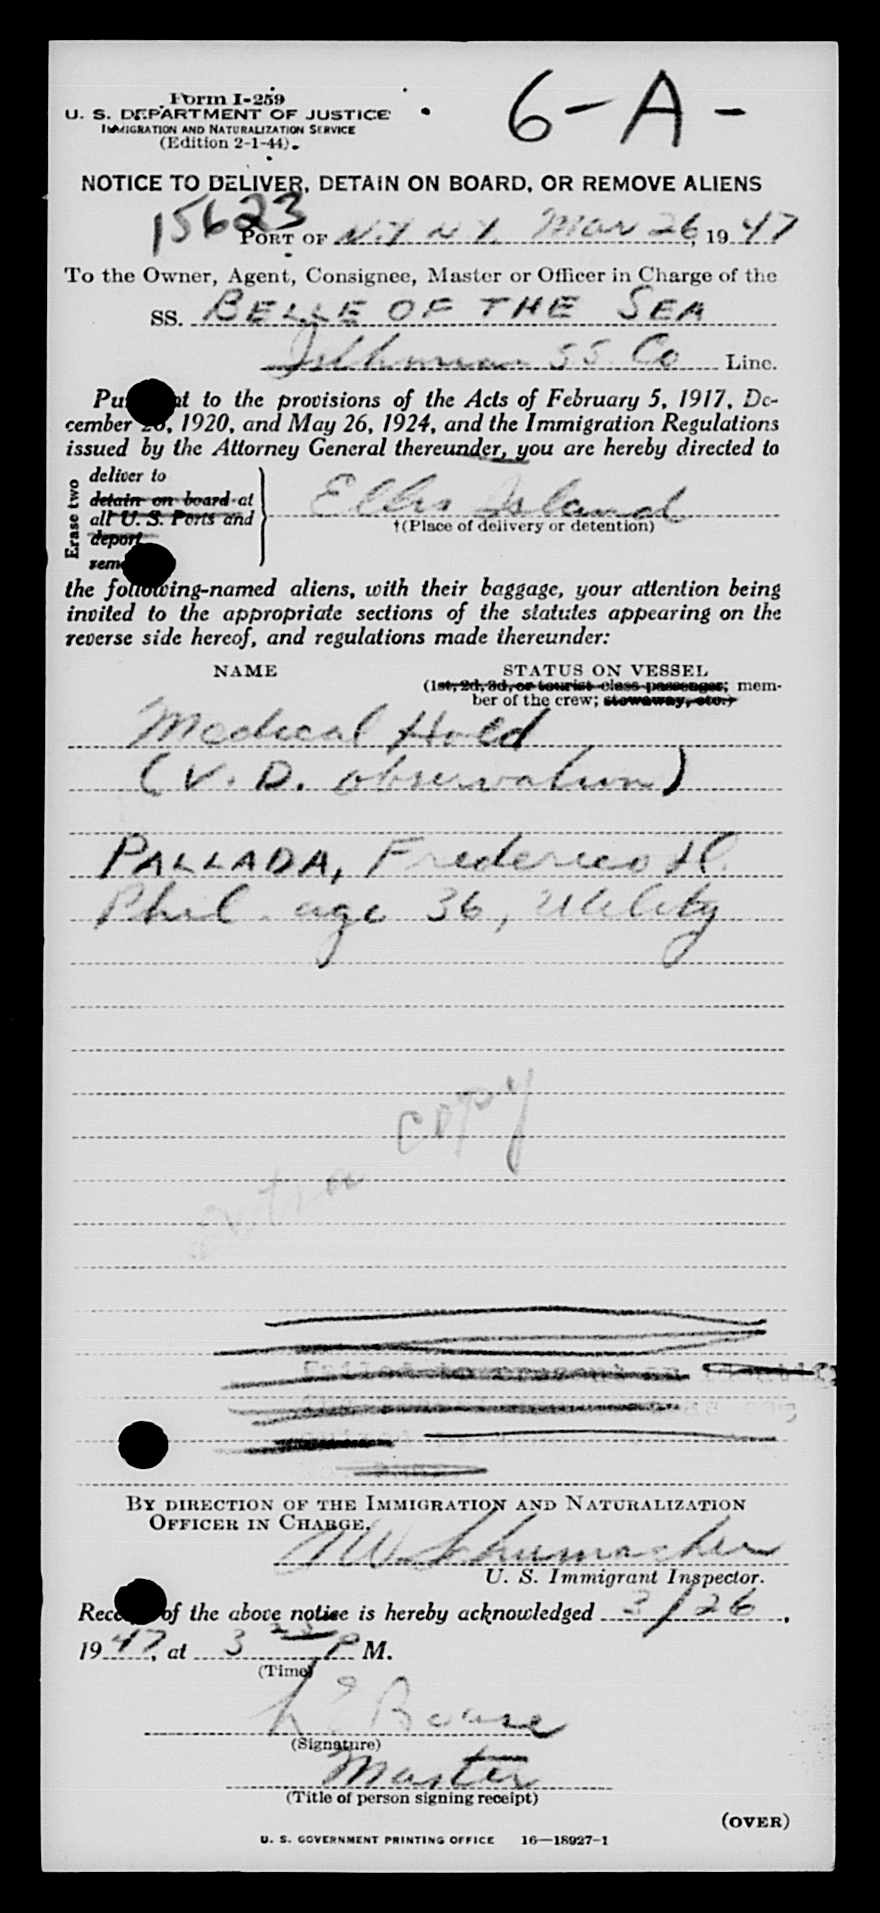 Form I-259
6-A-
U. S. DEPARTMENT OF JUSTICE
IMMIGRATION AND NATURALIZATION SERVICE
(Edition 2-1-44)
NOTICE TO DELIVER, DETAIN ON BOARD, OR REMOVE ALIENS
15623
PORT OF N.Y. N.Y. Mar 26, 1947
To the Owner, Agent, Consignee, Master or Officer in Charge of the
SS. BELLE OF THE SEA
Isthmian SS. Co Line.
Pu t to the provisions of the Acts of February 5, 1917, De-
cember 20, 1920, and May 26, 1924, and the Immigration Regulations
issued by the Attorney General thereunder, you are hereby directed to
Erase two
deliver to
detain on board at
all U. S. Ports and
deport
rem
Ellis Island
†(Place of delivery or detention)
the following-named aliens, with their baggage, your attention being
invited to the appropriate sections of the statutes appearing on the
reverse side hereof, and regulations made thereunder:
NAME STATUS ON VESSEL
(1st, 2d, 3d, or tourist class passenger; mem-
ber of the crew; stowaway, etc.)
Medical Hold
(V. D. observation)
PALLADA, Frederico H.
Phil. age 36, Utility
extra copy
Failed to present an
BY DIRECTION OF THE IMMIGRATION AND NATURALIZATION
OFFICER IN CHARGE.
M W Schumacher
U. S. Immigrant Inspector.
Rece of the above notice is hereby acknowledged 3/26,
1947, at 3 25 P M.
(Time)
(Signature)
Master
(Title of person signing receipt)
(OVER)
U. S. GOVERNMENT PRINTING OFFICE 16—18927-1